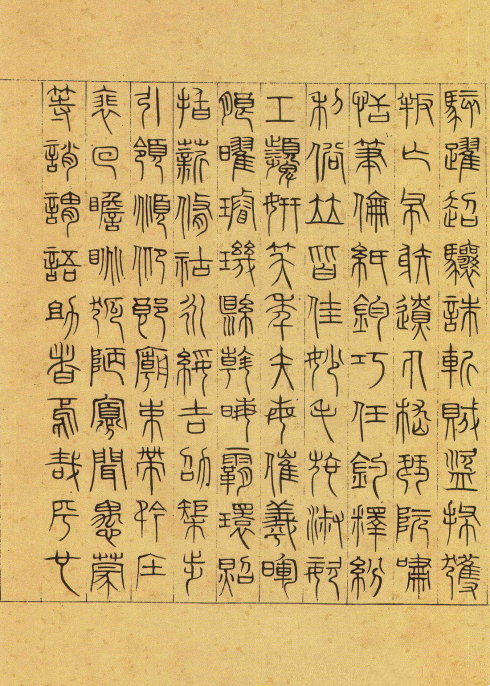 駭躍超驤誅斬賊盜捕獲
叛亡布射遼丸嵇琴阮嘯
恬筆倫紙鈞巧任釣釋紛
利俗竝皆佳妙毛施淑姿
工顰妍笑年矢每催羲暉
朗曜璿璣縣斡晦霸環照
指薪脩祜永綏吉劭榘步
引領頫仰郎廟束帶矜莊
裵回瞻眺孤陋寡聞愚蒙
等誚謂語助者焉哉乎也